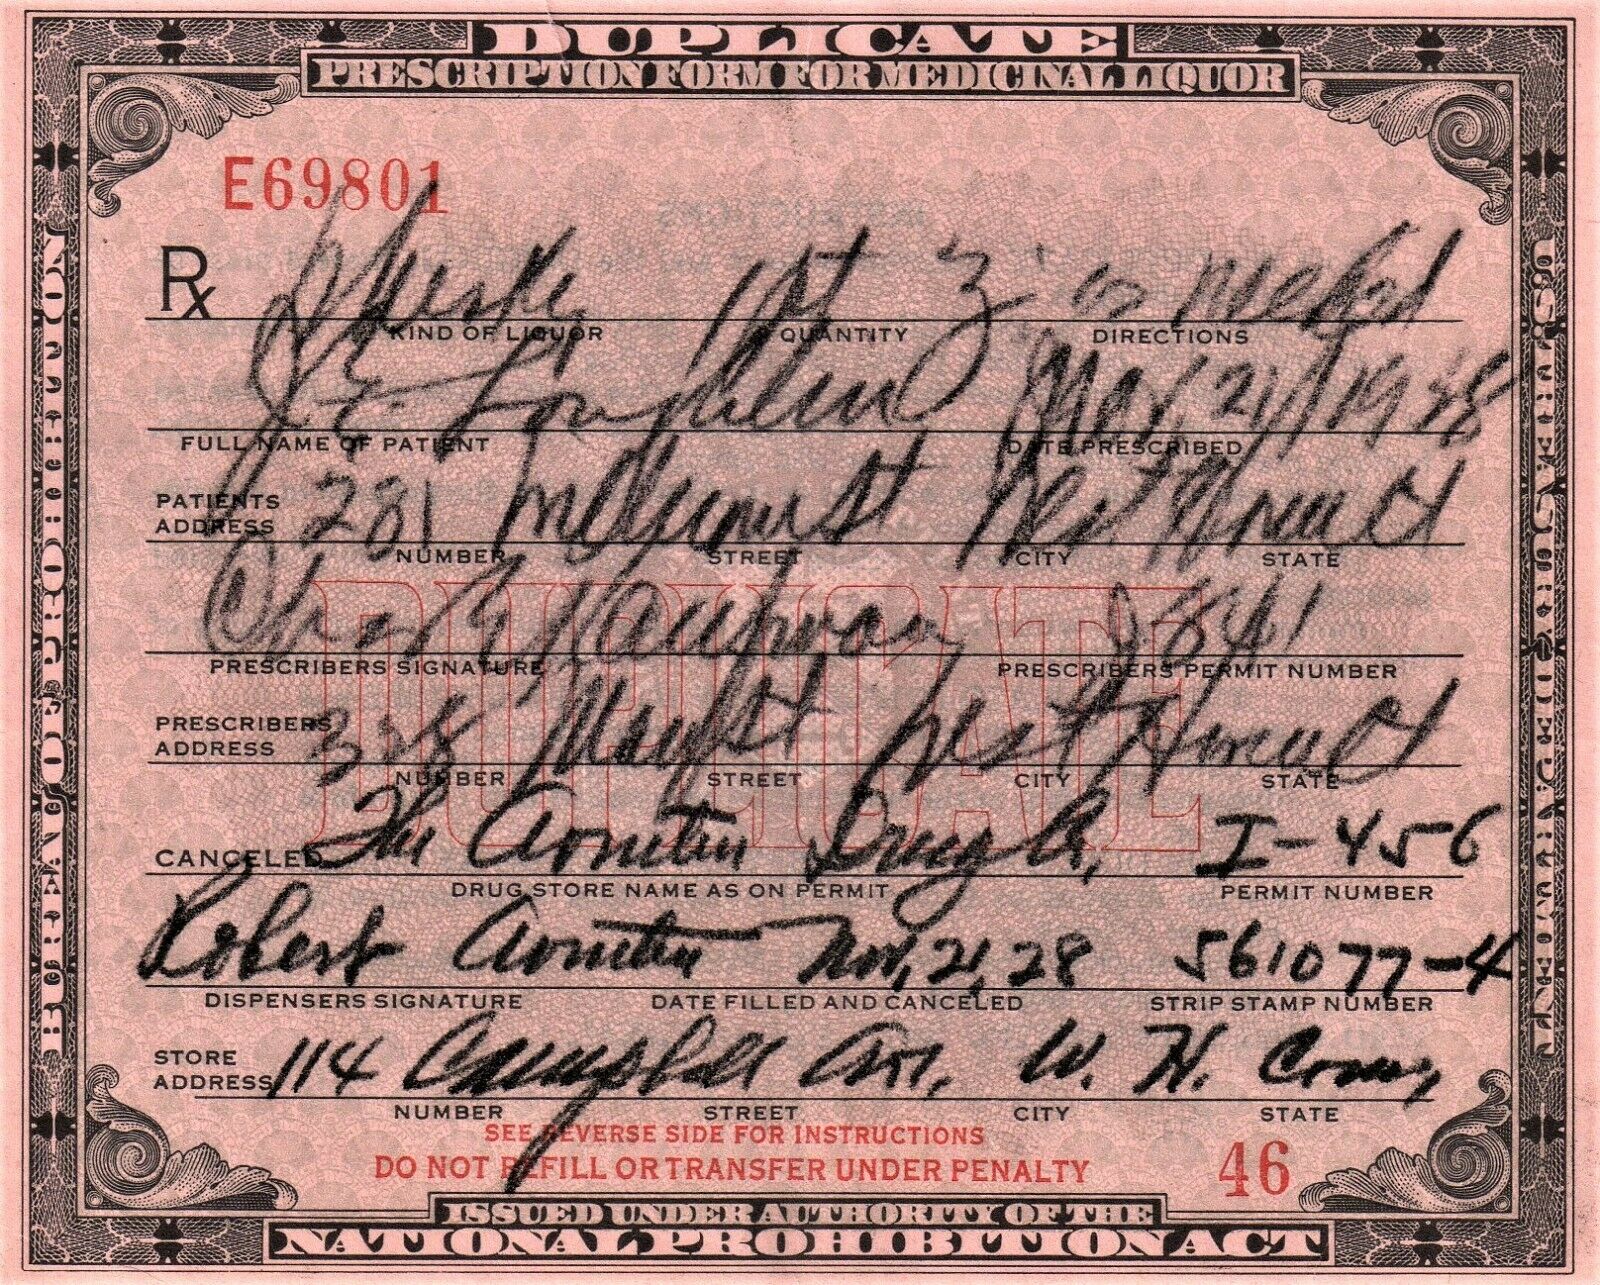 DUPLICATE
PRESCRIPTION FORM FOR MEDICINAL LIQUOR
E69801
Rx Whiskey 1 pt
KIND OF LIQUOR QUANTITY DIRECTIONS
Nov, 21, 1928
FULL NAME OF PATIENT DATE PRESCRIBED
PATIENTS ADDRESS 281 St West Haven Ct
NUMBER STREET CITY STATE
DUPLICATE
PRESCRIBERS SIGNATURE PRESCRIBERS PERMIT NUMBER
PRESCRIBERS ADDRESS 328 St West Haven Ct
NUMBER STREET CITY STATE
CANCELED The Drug Co. I-456
DRUG STORE NAME AS ON PERMIT PERMIT NUMBER
Robert Nov, 21, 28 561077-4
DISPENSERS SIGNATURE DATE FILLED AND CANCELED STRIP STAMP NUMBER
STORE ADDRESS 114 Campbell Ave, W. H. Conn,
NUMBER STREET CITY STATE
SEE REVERSE SIDE FOR INSTRUCTIONS
DO NOT REFILL OR TRANSFER UNDER PENALTY
46
ISSUED UNDER AUTHORITY OF THE
NATIONAL PROHIBITION ACT